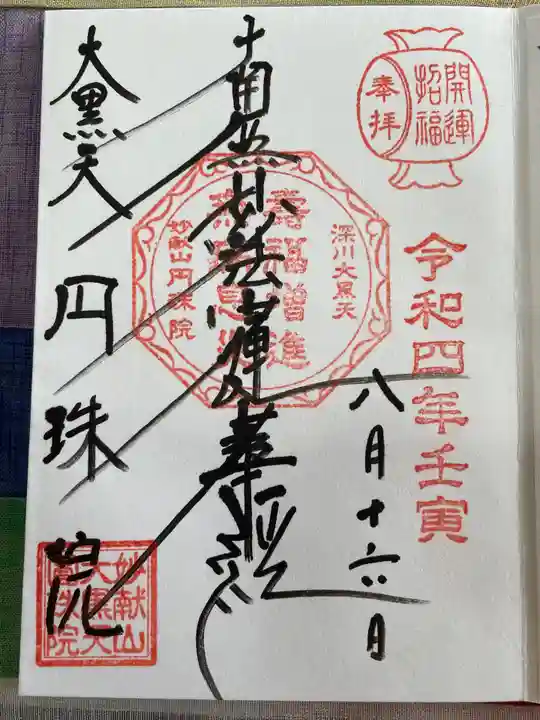 奉拝
開運
招福
令和四年壬寅
八月十六日
深川大黒天
壽福増進
妙献山円珠院
南無妙法蓮華経
大黒天
円珠院
妙献山
大黒天
円珠院